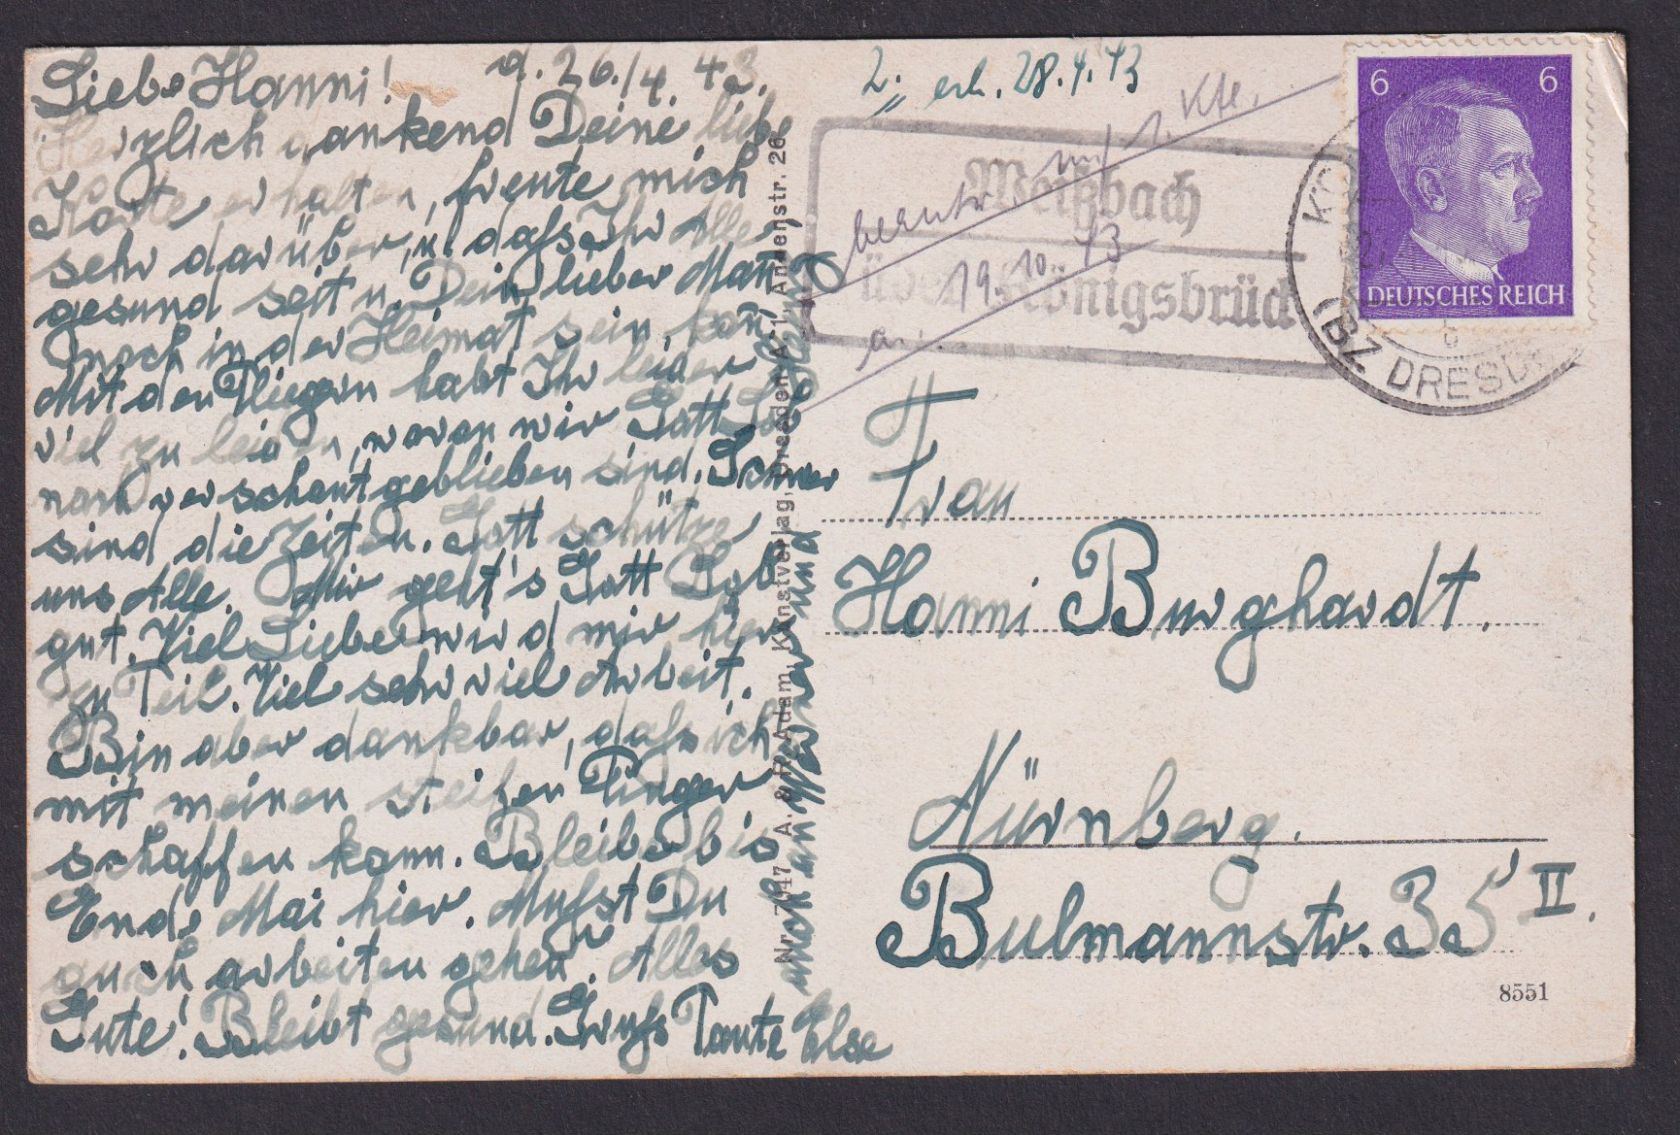 Liebe Hanni! d. 26./4. 43.
Herzlich dankend Deine liebe
Karte erhalten, freute mich
sehr darüber, u. dass Ihr Alle
gesund seit u. Dein lieber Mann
noch in der Heimat sein kañ
Mit den Fliegern habt Ihr leider
viel zu leiden, wovon wir Gott Lob
noch verschont geblieben sind. Schwer
sind die Zeiten. Gott schütze
uns Alle. Mir geht's Gott Lob
gut. Viel Liebe wird mir hier
zu Teil. Viel sehr viel Arbeit.
Bin aber dankbar, dass ich
mit meinen steifen Finger
schaffen kann. Bleibe bis
Ende Mai hier. Musst Du
auch arbeiten gehen. Alles
Gute! Bleibt gesund. Gruss Tante Else
auch an
Nr. 7347 A. & R. Adam, Kunstverlag, Dresden A. 1, Annenstr. 26
2. erh. 28.4.43
beantw. mit 1. Kte.
19.10.43
an
Weißbach
über Königsbrück
(BZ. DRESD
6 6
DEUTSCHES REICH
Frau
Hanni Burghardt.
Nürnberg.
Bulmannstr. 35 II.
8551